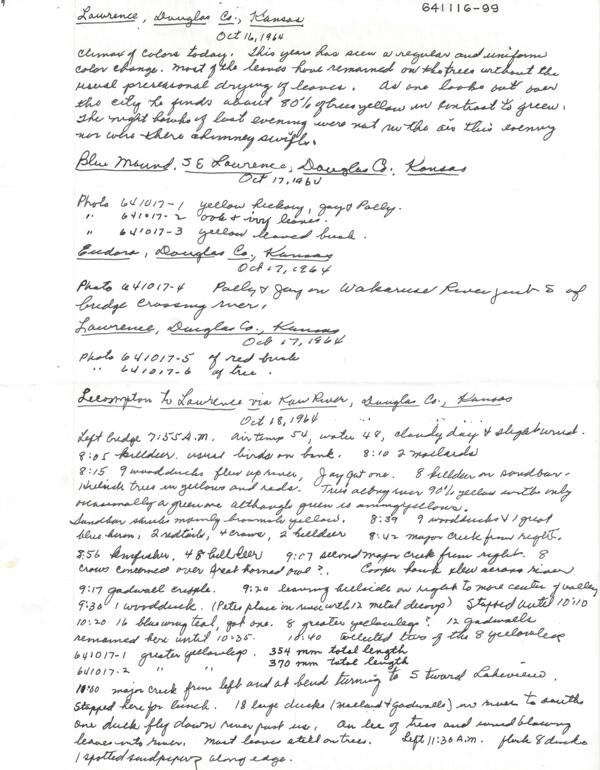 641116-99
Lawrence, Douglas Co., Kansas
Oct 16, 1964
Climax of colors today. This years has seen a regular and uniform
color change. Most of the leaves have remained on the trees without the
usual preseasonal drying of leaves. As one looks out over
the city he finds about 80% of trees yellow in contrast to green.
The night hawks of last evening were not in the air this evening
nor were there chimney swifts.
Blue Mound, SE Lawrence, Douglas Co., Kansas
Oct 17, 1964
Photo 641017-1 yellow hickory, Jay & Polly.
" 641017-2 oak & ivy leaves.
" 641017-3 yellow leaved bush.
Eudora, Douglas Co., Kansas
Oct 17, 1964
Photo 641017-4 Polly & Jay on Wakarusa River just S of
bridge crossing river.
Lawrence, Douglas Co., Kansas
Oct 17, 1964
Photo 641017-5 of red bush
" 641017-6 of tree.
Lecompton to Lawrence via Kaw River, Douglas Co., Kansas
Oct 18, 1964
Left bridge 7:55 A.M. Air temp 54, water 48, cloudy day & slight wind.
8:05 killdeer. usual birds on bank. 8:10 2 mallards
8:15 9 wood ducks flew up river, Jay got one. 8 killdeer on sandbar.
Hillside trees in yellows and reds. Trees along river 90% yellow with only
occasionally a green one although green is among yellows.
Sandbar shrubs mainly brownish yellow. 8:39 9 woodducks & 1 great
blue heron, 2 redtails, 4 crows, 2 killdeer 8:42 major creek from right.
8:56 kingfisher, 48 killdeer 9:07 second major creek from right. 8
crows concerned over great horned owl?. Cooper hawk flew across river
9:17 gadwall cripple. 9:20 leaving hillside on right to more center of valley
9:30 1 woodduck. (Petes place in river with 12 metal decoys) Stopped until 10:10
10:20 16 blue wing teal, got one. 8 greater yellowlegs? 12 gadwalls
remained here until 10:35. 10:40 collected two of the 8 yellowlegs
641017-1 greater yellowlegs. 354 mm total length
641017-2 " " 370 mm total length
10:50 major creek from left and at bend turning to S toward Lakeview.
Stopped here for lunch. 18 large ducks (mallard & gadwalls) in river to south
one duck fly down river past us. In lee of trees and wind blowing
leaves into river. Most leaves still on trees. Left 11:30 A.M. flock 8 ducks
1 spotted sandpiper along edge.